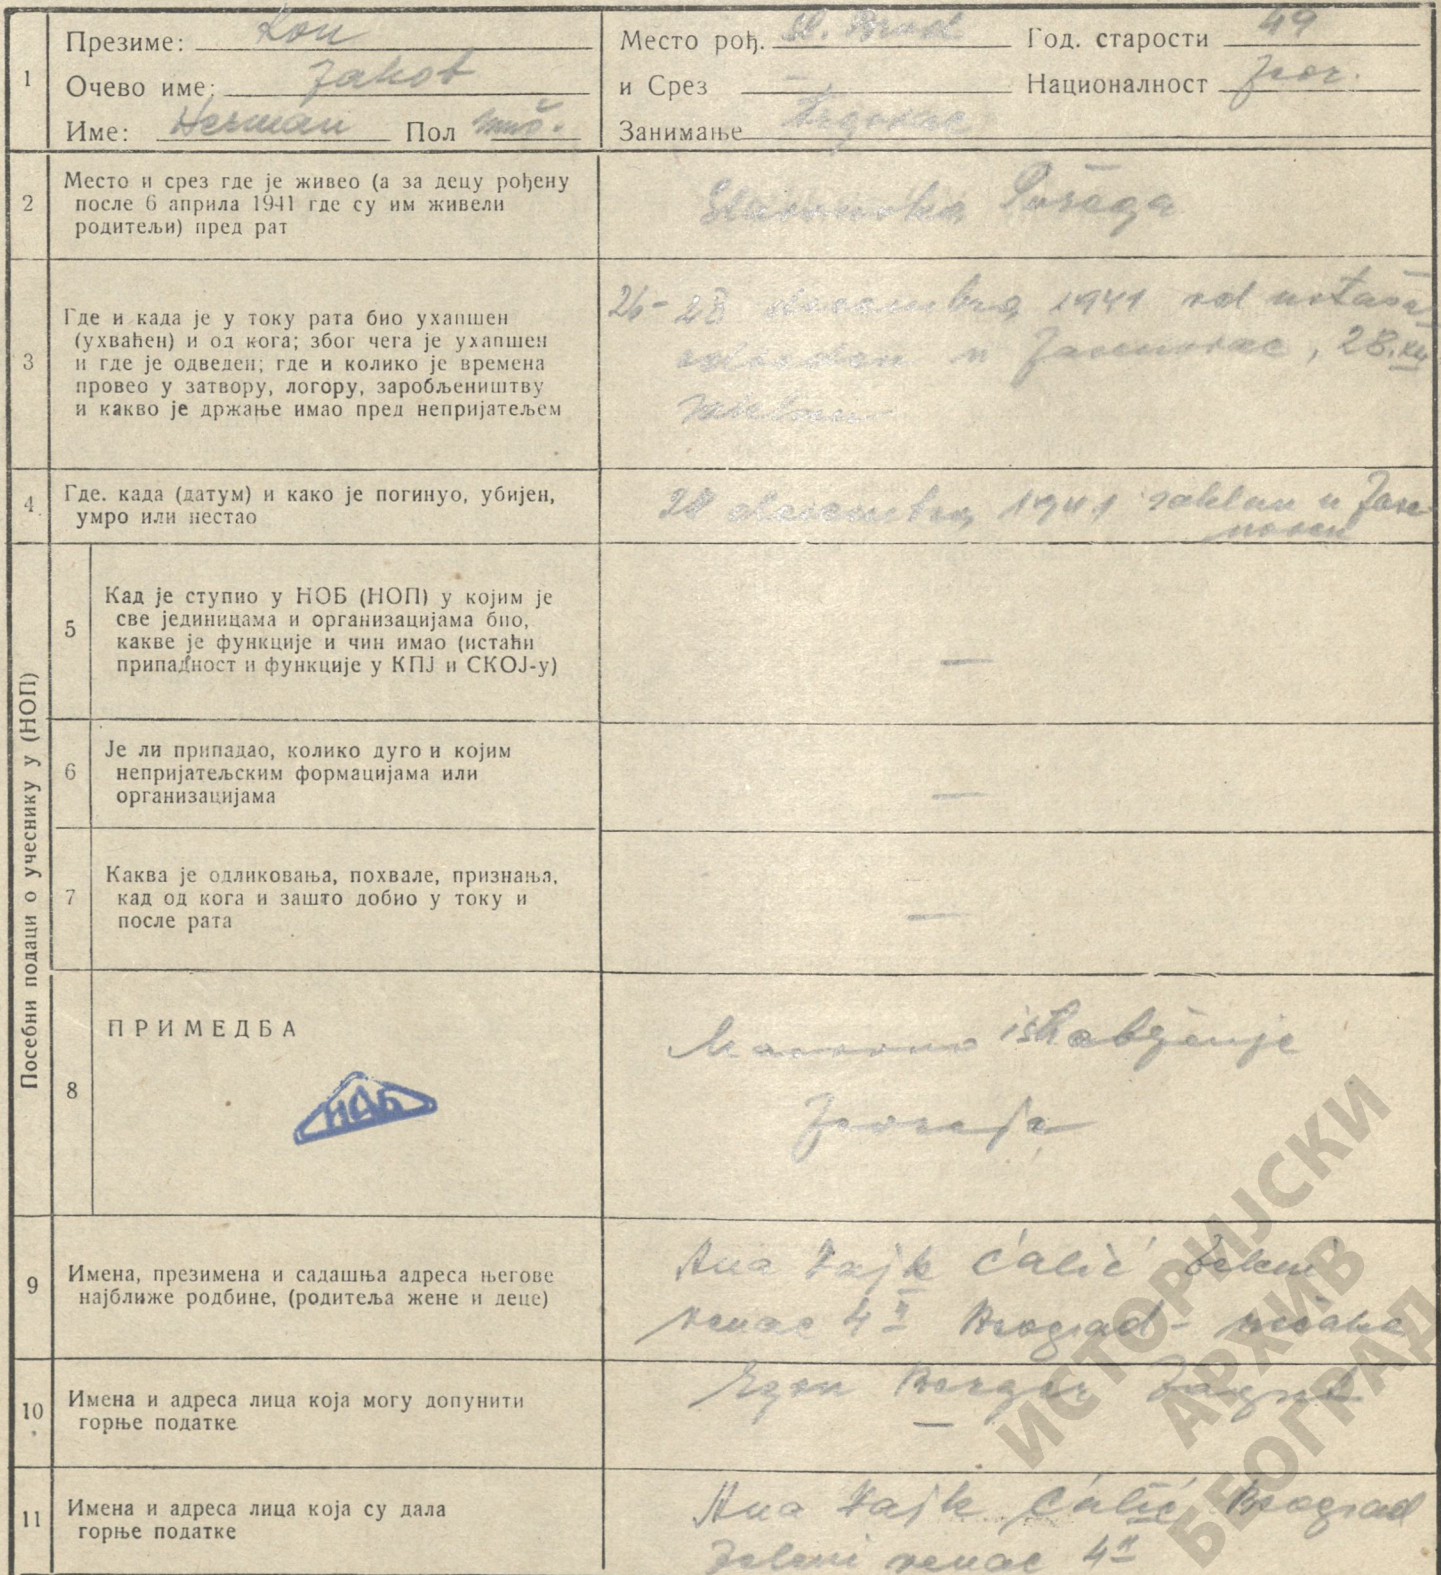 1
Презиме: Kon
Очево име: Jakob
Име: Herman Пол muš.
Место рођ. Sl. Brod Год. старости 49
и Срез — Националност Jevr.
Занимање Trgovac
2
Место и срез где је живео (а за децу рођену
после 6 априла 1941 где су им живели
родитељи) пред рат
Slavonska Požega
3
Где и када је у току рата био ухапшен
(ухваћен) и од кога; због чега је ухапшен
и где је одведен; где и колико је времена
провео у затвору, логору, заробљеништву
и какво је држање имао пред непријатељем
26-28 decembra 1941 od ustaša
odveden u Jasenovac, 28.XII
zaklan
4
Где. када (датум) и како је погинуо, убијен,
умро или нестао
28 decembra 1941 zaklan u Jase
novcu
Посебни подаци о учеснику у (НОП)
5
Кад је ступио у НОБ (НОП) у којим је
све јединицама и организацијама био,
какве је функције и чин имао (истаћи
припадност и функције у КПЈ и СКОЈ-у)
—
6
Је ли припадао, колико дуго и којим
непријатељским формацијама или
организацијама
—
7
Каква је одликовања, похвале, признања,
кад од кога и зашто добио у току и
после рата
—
8
ПРИМЕДБА
Masovno istrebljenje
Jevreja
9
Имена, презимена и садашња адреса његове
најближе родбине, (родитеља жене и деце)
Ana Fajk Ćalić Zeleni
venac 4 II Beograd - nećaka
10
Имена и адреса лица која могу допунити
горње податке
Egon Berger Zagreb
—
11
Имена и адреса лица која су дала
горње податке
Ana Fajk Ćalić Beograd
Zeleni venac 4 II
ИСТОРИЈСКИ
АРХИВ
БЕОГРАД